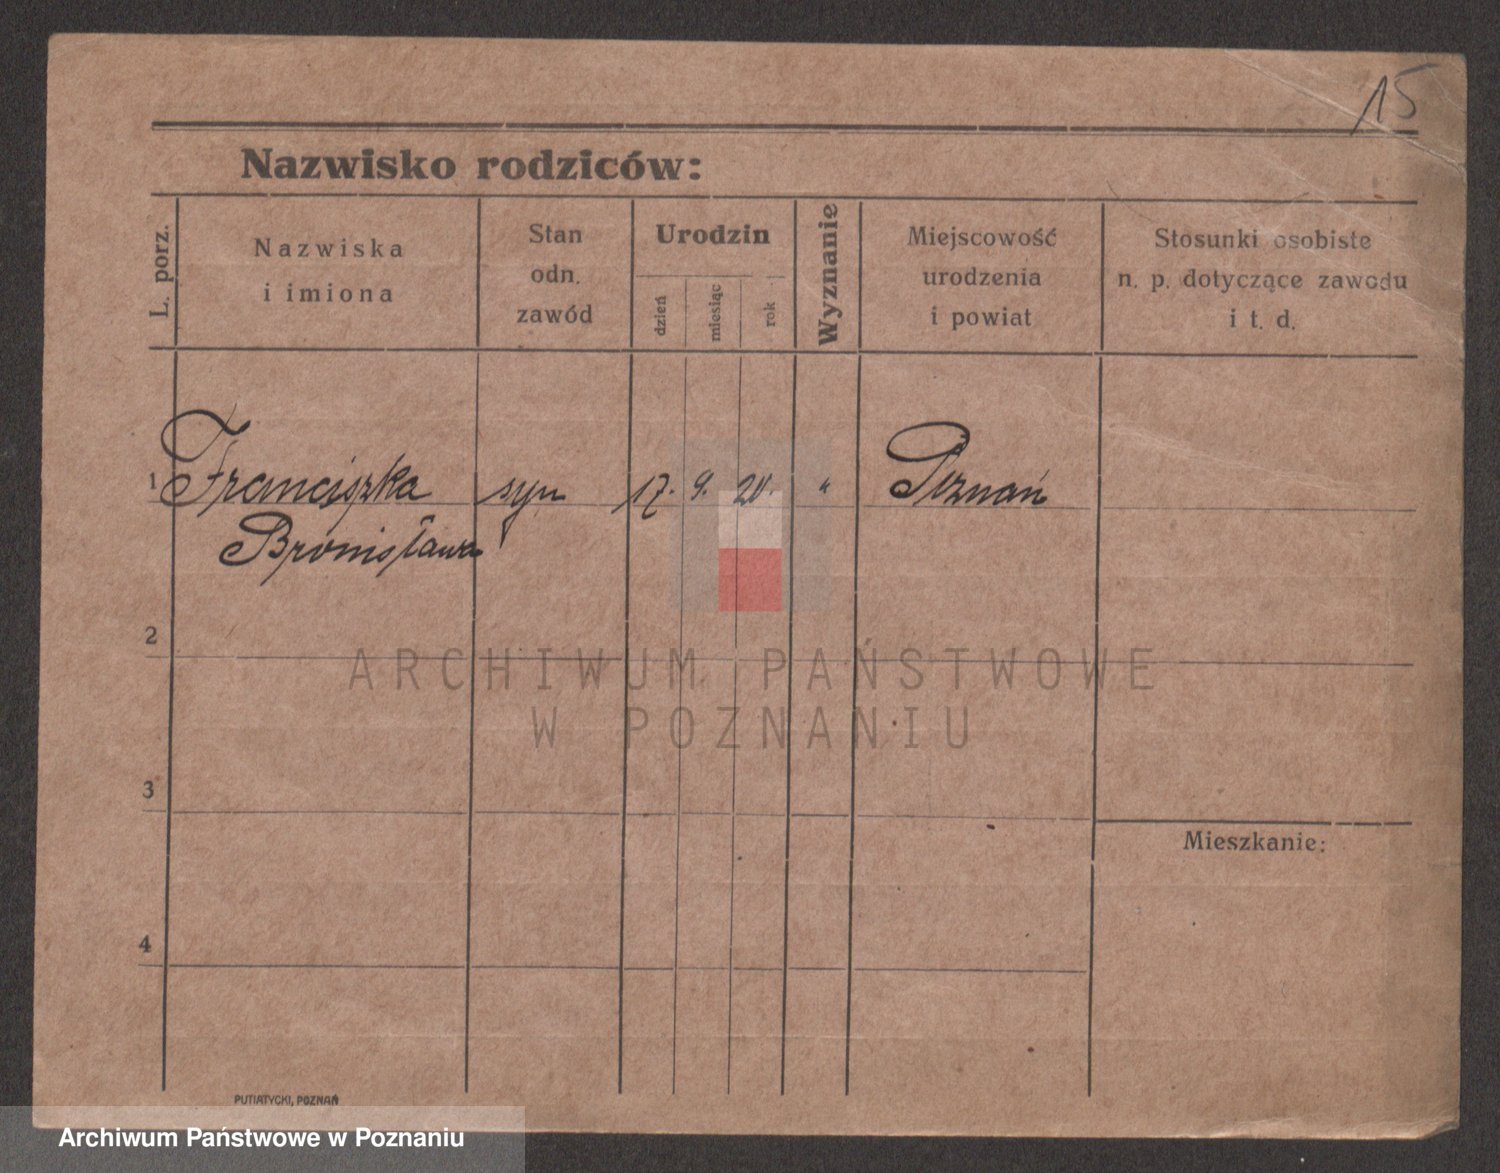 15
Nazwisko rodziców:
L. porz.
Nazwiska
i imiona
Stan
odn.
zawód
Urodzin
dzień
miesiąc
rok
Wyznanie
Miejscowość
urodzenia
i powiat
Stosunki osobiste
n. p. dotyczące zawodu
i t. d.
1 Franciszka syn 17. 9. 20. " Poznań
Bronisława
2
ARCHIWUM PAŃSTWOWE
W POZNANIU
3
Mieszkanie:
4
PUTIATYCKI, POZNAŃ
Archiwum Państwowe w Poznaniu